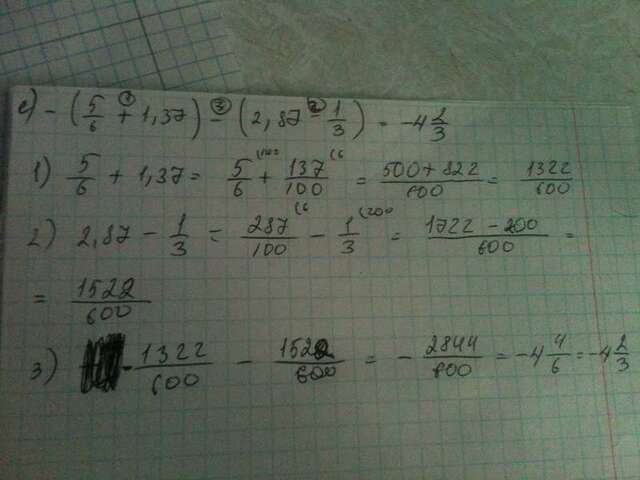 е) - (5/6 + 1,37) - (2,87 - 1/3) = -4 2/3
1) 5/6 + 1,37 = 5/6 (100 + 137/100 (6 = 500+822/600 = 1322/600
2) 2,87 - 1/3 = 287/100 (6 - 1/3 (200 = 1722-200/600 =
= 1522/600
3) - 1322/600 - 1522/600 = - 2844/600 = -4 4/6 = -4 2/3